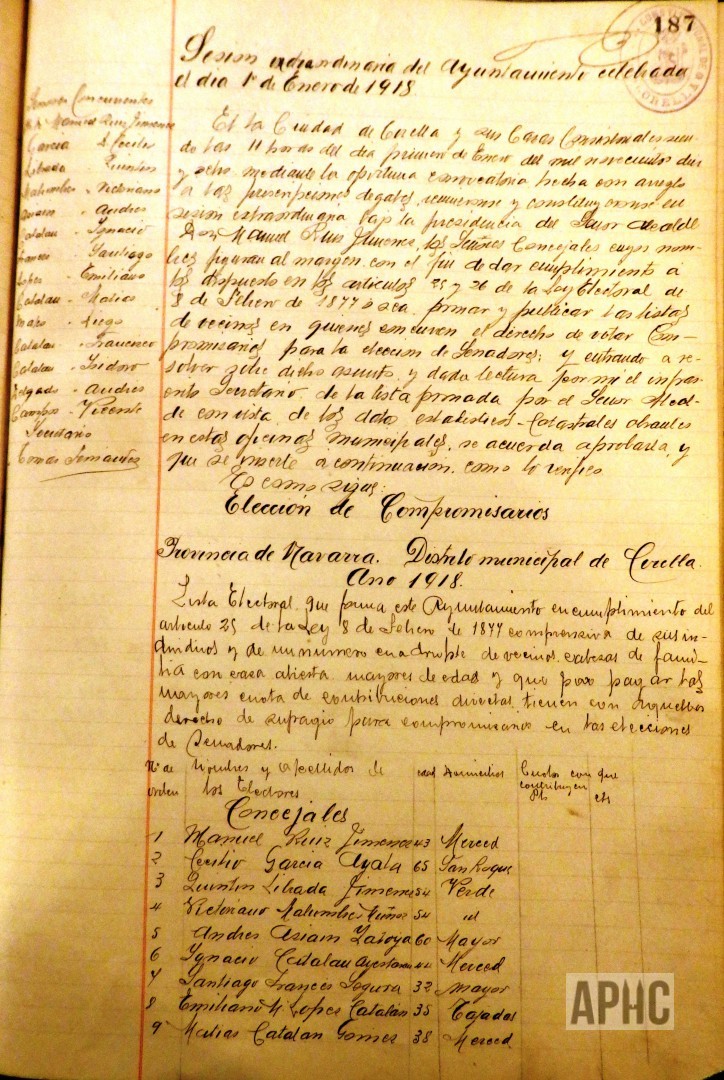 187
Sesion extraordinaria del Ayuntamiento celebrada
el dia 1º de Enero de 1918
Señores Concurrentes
D. Manuel Ruiz Jimenez
Garcia D. Cecilio
Librada - Quintin
Malumbres - Victoriano
- Andres
Catalan - Ignacio
Frances - Santiago
Lopez - Emiliano
Catalan - Matias
- Diego
Catalan - Francisco
Catalan - Isidoro
Delgado - Andres
Campos - Vicente
Secretario
Tomas Fernandez
En la Ciudad de Corella y sus Casas Consistoriales sien-
do las 11 horas del dia primero de Enero del mil novecientos diez
y ocho, mediante la oportuna convocatoria hecha con arreglo
a las prescripciones legales, reunieronse y constituyeronse en
sesion extraordinaria bajo la presidencia del Señor Alcalde
Don Manuel Ruiz Jimenez, los Señores Concejales cuyos nom-
bres figuran al margen, con el fin de dar cumplimiento a
lo dispuesto en los articulos 25 y 26 de la Ley Electoral de
8 de Febrero de 1877 o sea formar y publicar las listas
de vecinos en quienes concurren el derecho de votar Com-
promisarios para la eleccion de Senadores; y entrando a re-
solver sobre dicho asunto, y dada lectura por mi el infras-
crito Secretario, de la lista formada por el Señor Alcal-
de con vista de los datos estadisticos-Catastrales obrantes
en estas oficinas municipales, se acuerda aprobarla, y
que se inserte a continuacion, como lo verifico
Es como sigue:
Elección de Compromisarios
Provincia de Navarra. Distrito municipal de Corella.
Año 1918.
Lista Electoral que forma este Ayuntamiento en cumplimiento del
articulo 25 de la Ley 8 de Febrero de 1877 comprensiva de sus in-
dividuos y de un numero cuadruple de vecinos cabezas de fami-
lia con casa abierta mayores de edad y que por pagar las
mayores cuota de contribuciones directas tienen con aquellos
derecho de sufragio para compromisarios en las elecciones
de Senadores.
Nº de orden Nombres y apellidos de los Electores edad Domicilios Cuotas con que contribuyen Pts cts
Concejales
1 Manuel Ruiz Jimenez 43 Merced
2 Cecilio Garcia Ayala 65 San Roque
3 Quintin Librada Jimenez 54 Verde
4 Victoriano Malumbres Muñoz 54 id
5 Andres Asiain Zatoya 60 Mayor
6 Ygnacio Catalan Merced
7 Santiago Frances Segura 32 Mayor
8 Emiliano M. Lopez Catalan 35 Tajadas
9 Matias Catalan Gomez 38 Merced
APHC